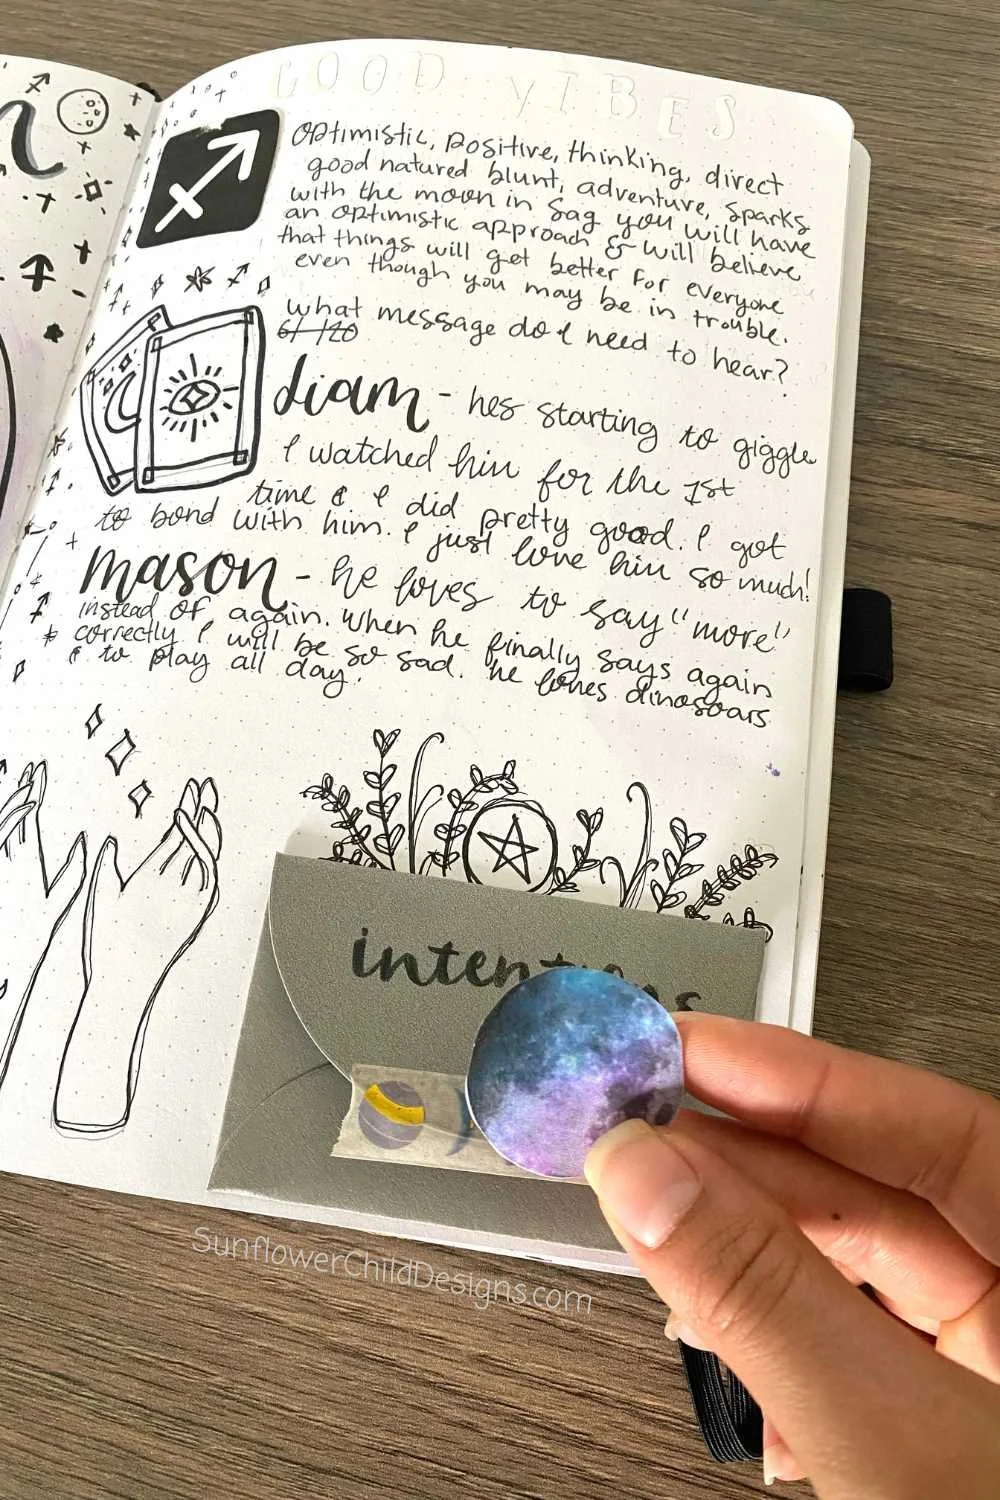 GOOD VIBES
optimistic, positive, thinking, direct
good natured blunt, adventure, sparks
with the moon in Sag you will have
an optimistic approach & will believe
that things will get better for everyone
even though you may be in trouble.
what message do I need to hear?
6/ /20
Liam - hes starting to giggle
I watched him for the 1st
time & I did pretty good. I got
to bond with him. I just love him so much!
mason - he loves to say "more"
instead of again. When he finally says again
correctly I will be so sad. he loves dinosoars
& to play all day.
intentions
SunflowerChildDesigns.com